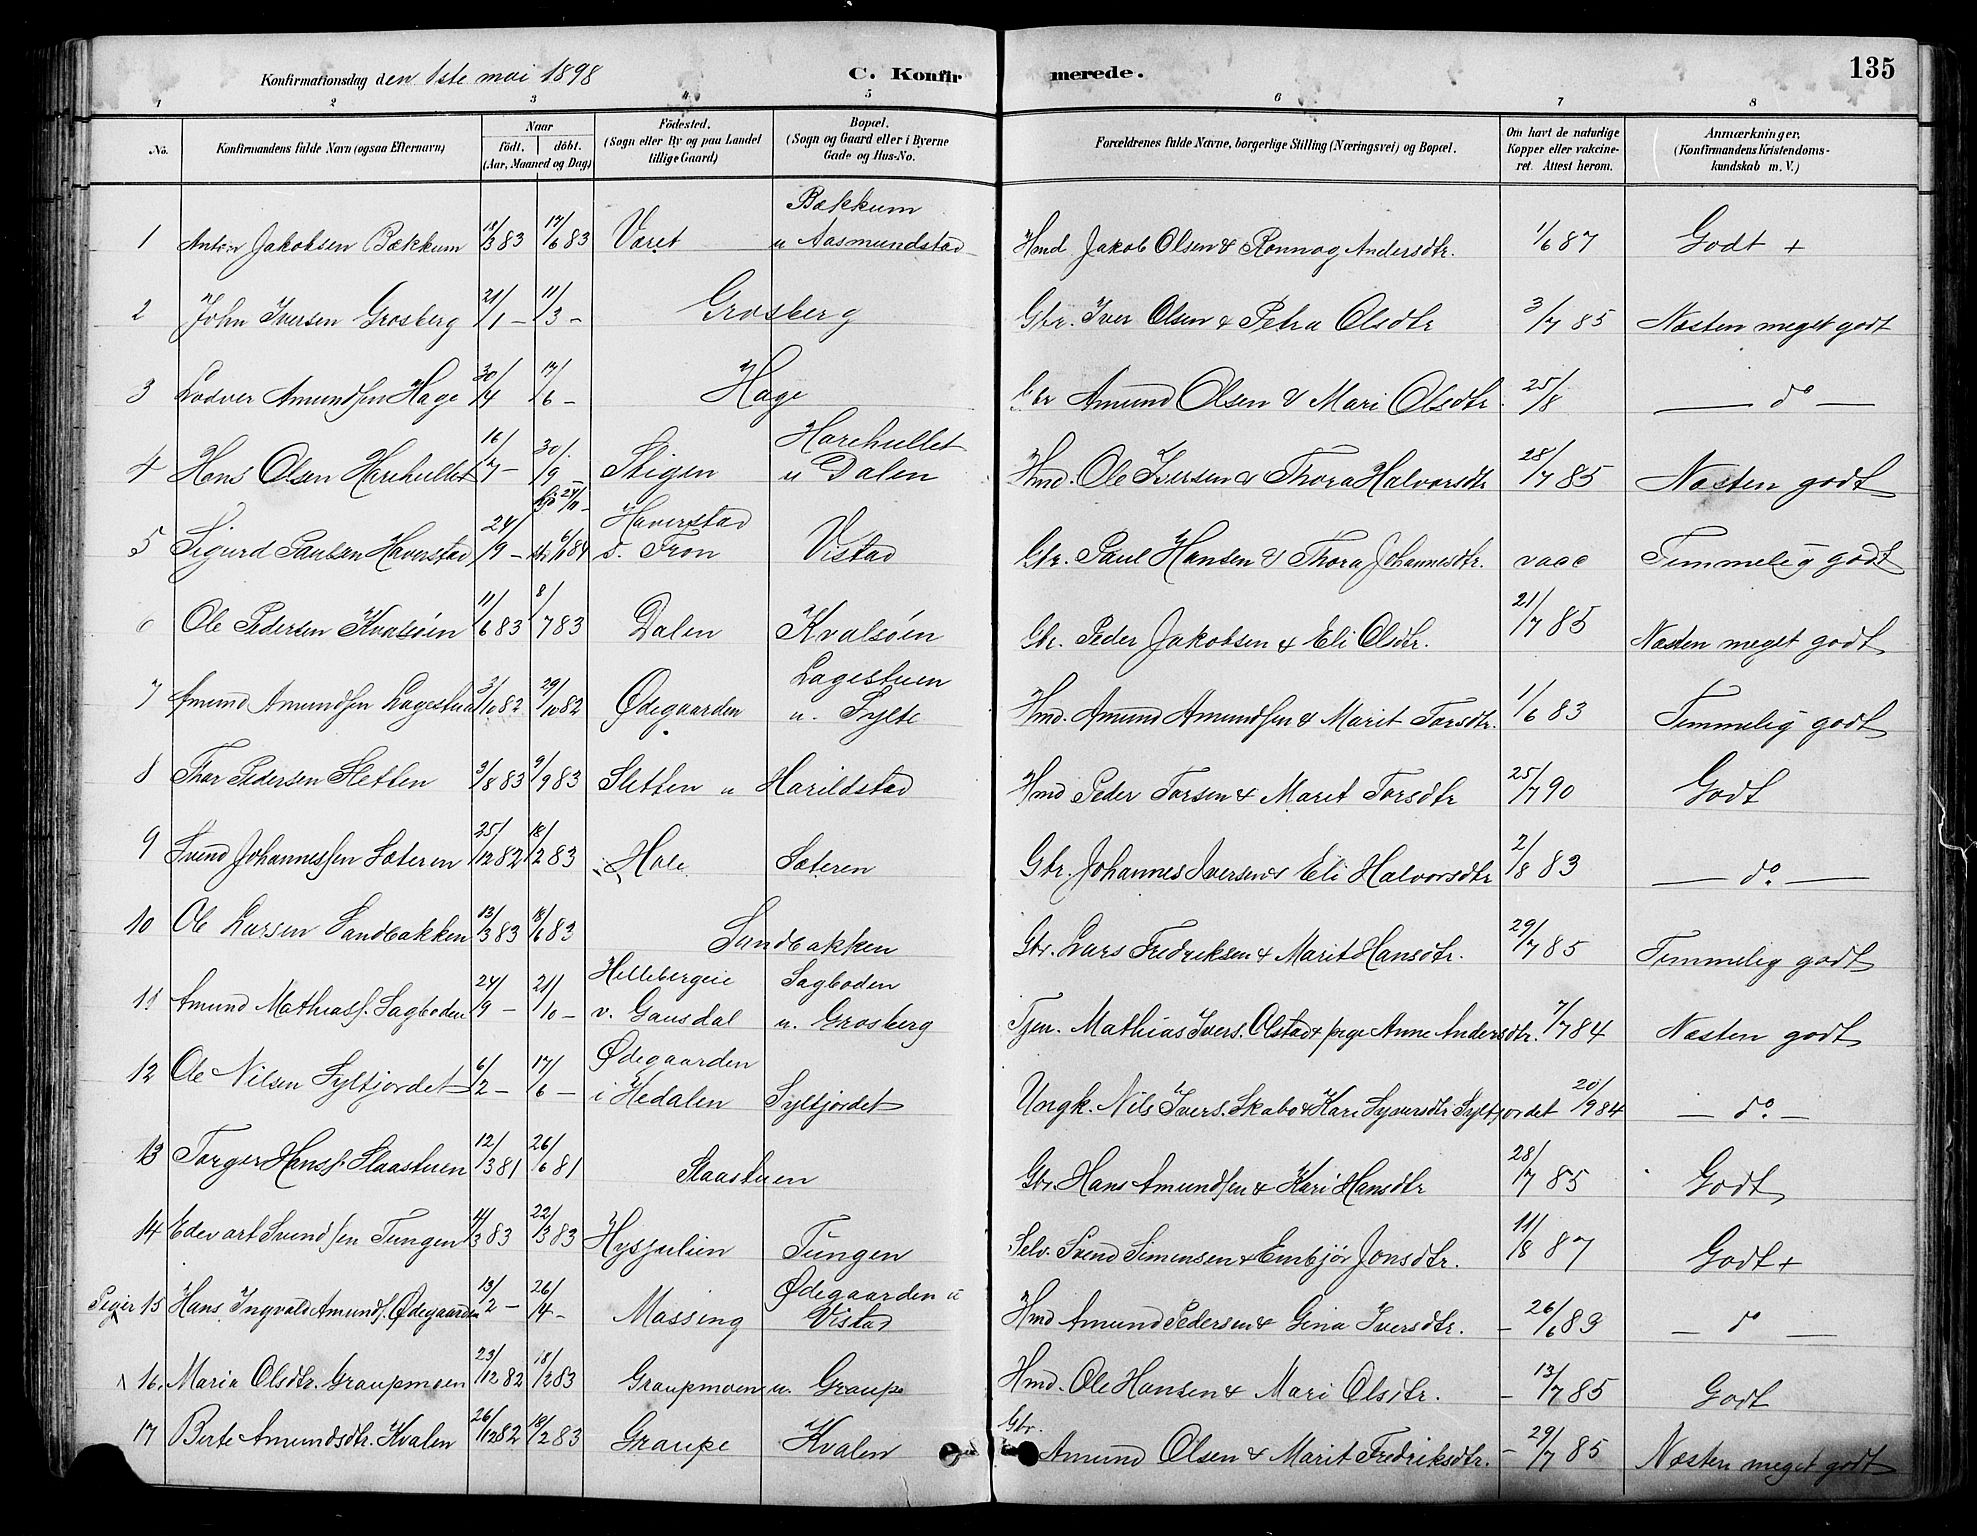 Konfirmationsdag den 1ste mai 1898 C. Konfirmerede. 135
1 2 3 4 5 6 7 8
No. Konfirmandens fulde Navn (ogsaa Efternavn) Naar födt. döbt. (Aar, Maaned og Dag) Födested. (Sogn eller By og paa Landet tillige Gaard) Bopæl. (Sogn og Gaard eller i Byerne Gade og Hus-No. Forældrenes fulde Navne, borgerlige Stilling (Næringsvei) og Bopæl. Om havt de naturlige Kopper eller vakcineret. Attest herom. Anmærkninger. (Konfirmandens Kristendomskundskab m. V.)
1 Anton Jakobsen Bækkum 18/3 83 17/6 83 Varet Bækkum u Aasmundstad Hmd Jakob Olsen & Ronnog Andersdtr. 1/6 87 Godt +
2 John Iversen Grosberg 21/1 - 11/3 - Grosberg Gbr. Iver Olsen & Petra Olsdtr 3/7 85 Næsten meget godt
3 Lodver Amundsen Hage 30/4 17/6 - Hage Gbr Amund Olsen & Mari Olsdtr. 25/8 - do -
4 Hans Olsen Harehullet 16/7 - 30/9 Stigen Harehullet u Dalen Hmd. Ole Iversen & Thora Halvorsdtr 28/7 85 Næsten godt
5 Sigurd Paulsen Haverstad 24/9 - Haverstad S. Fron Vistad Gbr. Paul Hansen & Thora Johannesdtr. vacc Temmelig godt
6 Ole Pedersen Kvalsöen 11/6 83 8/7 83 Dalen Kvalsöen Gbr. Peder Jakobsen & Eli Olsdtr. 21/7 85 Næsten meget godt
7 Amund Amundsen Lagestuen 3/10 82 29/10 82 Ødegaarden Lagestuen u. Sylte Hmd. Amund Amundsen & Marit Torsdtr. 1/6 83 Temmelig godt
8 Thor Pedersen Sletten 3/8 83 9/9 83 Sletten u Harildstad Hmd Peder Torsen & Marit Torsdtr 25/7 90 Godt
9 Svend Johannessen Sæteren 25/12 82 18/2 83 Hole Sæteren Gbr. Johannes Iversen & Eli Halvorsdtr 2/8 83 - do. -
10 Ole Larsen Sandbakken 13/3 83 18/6 83 Sandbakken Gbr. Lars Fredriksen & Marit Hansdtr. 29/7 85 Temmelig godt
11 Amund Mathiass. Sagboden 24/9 - 21/10 - Hellebergeie v. Gausdal Sagboden u. Grosberg Tjen. Mathias Ivers. Olstad & pige Anne Andersdtr. 7/7 84 Næsten godt
12 Ole Nilsen Syltjordet 6/2 - 17/6 - Ødegaarden i Hedalen Syltjordet Ungk. Nils Ivers. Skabo & Kari Syversdtr Syltjordet 20/9 84 - do. -
13 Torger Hanss. Slaastuen 12/3 81 26/6 81 Slaastuen Gbr Hans Amundsen & Kari Hansdtr 28/7 85 Godt
14 Edevart Svendsen Tungen 4/3 83 22/3 83 Hysjulien Tungen Selv. Svend Simensen & Embjør Jonsdtr. 11/8 87 Godt +
15 Hans Ingvald Amunds. Ødegaarden 13/2 - 26/4 - Massing Ødegaarden u Vistad Hmd Amund Pedersen & Gina Iversdtr. - 26/6 83 - do -
16. Maria Olsdtr. Graupmoen 23/12 82 18/2 83 Graupmoen u. Graupe Hmd. Ole Hansen & Mari Olsdtr. - 13/7 85 Godt
17 Berte Amundsdtr. Kvalen 26/12 82 18/2 83 Graupe Kvalen Gbr. Amund Olsen & Marit Fredriksdtr. - 29/7 85 Næsten meget godt